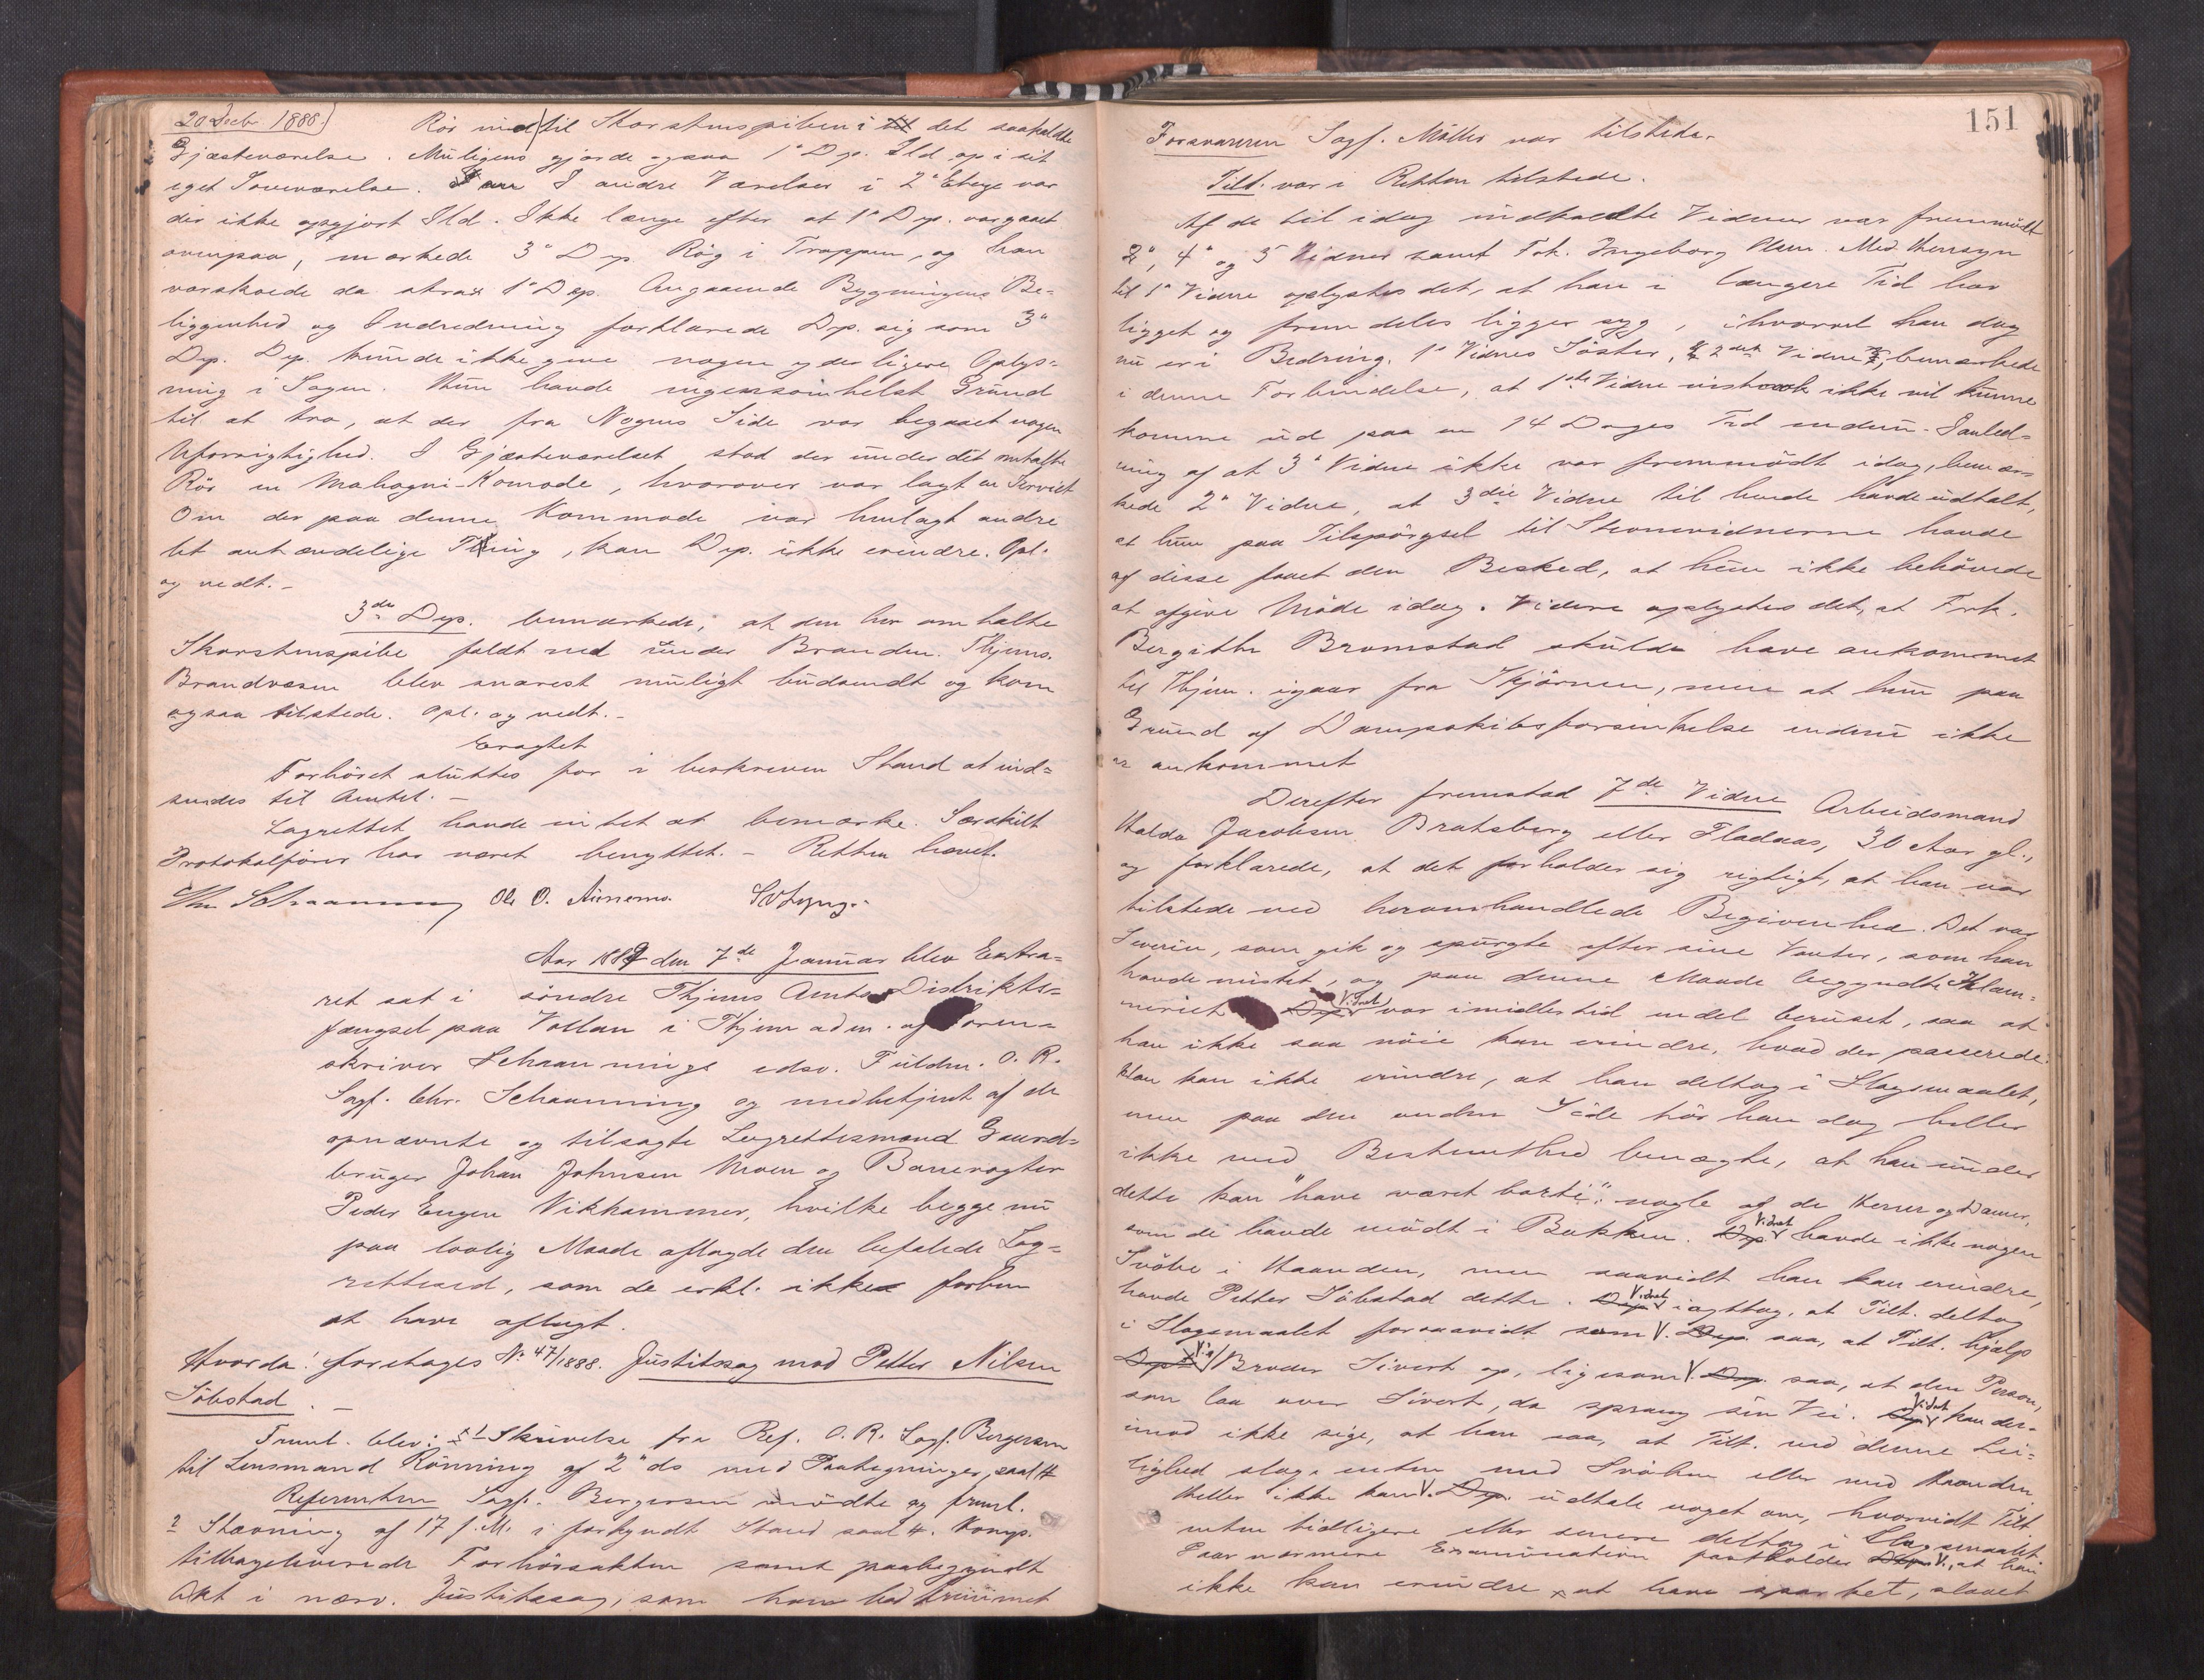 20 Decbr. 1888.)
Rør ind til Skorstenspiben i det saakaldte
Gjæsteværelse. Muligens gjorde ogsaa 1ª Dep. Ild op i sit
eget Soveværelse. I andre Værelser i 2ª Etage var
der ikke opgjort Ild. Ikke længe efter at 1ª Dep. var gaaet
ovenpaa, mærkede 3ª Dep. Røg i Trappen, og han
varskoede da strax 1ª Dep. Angaaende Bygningens Be-
liggenhed og Indredning forklarede Dep. sig som 3ª
Dep. Dep. kunde ikke give nogen yderligere Oplys-
ning i Sagen. Hun havde ingensomhelst Grund
til at tro, at der fra Nogens Side var begaaet nogen
Uforsigtighed. I Gjæsteværelset stod der under det omtalte
Rør en Mahogni-Komode, hvorover var lagt en Serviet
Om der paa denne Kommode var henlagt andre
let antændelige Ting, kan Dep. ikke erindre. Opl.
og vedt. -
3die Dep. bemærkede, at den her omhalte
Skorstenspibe faldt ned under Branden. Thjems.
Brandvæsen blev snarest muligt budsendt og kom
ogsaa tilstede. Opl. og vedt. -
Eragtet
Forhøret sluttes for i beskreven Stand at ind-
sendes til Amtet. -
Lagrettet havde intet at bemærke. Særskilt
Protokolfører har været benyttet. - Retten hævet.
Chr. Schaanning Ole O.
Aar 1889 den 7de Januar blev Extra-
ret sat i søndre Thjems Amts Distrikts-
fængsel paa Vollan i Thjem adm. af Soren-
skriver Schaannings edsv. Fuldm. O. R.
Sagf. Chr. Schaanning og medbetjent af de
opnævnte og tilsagte Lagrettesmænd Gaard-
bruger Johan Johnsen Moen og Banevogter
Peder Eugen Vikhammer, hvilke begge nu
paa lovlig Maade aflagde den befalede Lag-
retteed, som de erkl. ikke forhen
at have aflagt.
Hvorda: foretages No 47/1888. Justitssag mod Petter Nilsen
Søbstad. -
Freml. blev: 1 Skrivelse fra Ref. O. R. Sagf. Bergersen
til Lensmand Rønning af 2 ds med Paategninger, saal #
Referenten Sagf. Bergersen mødte og freml.
2 Stævning af 17 f. M. i forkyndt Stand saal #. Komp.
tilbageleverede Forhørsakten samt paabegyndt
Akt i nærv. Justitssag, som han
151
Forsvareren Sagf. Møller var tilstede.
Tilt. var i Retten tilstede.
Af de til idag indkaldte Vidner var fremmødt
2ª, 4ª og 5 Vidner samt Frk. Ingeborg Olsen. Med Hensyn
til 1ª Vidne oplystes det, at han i længere Tid har
ligget og fremdeles ligger syg, ihvorvel han dog
nu er i Bedring. 1ª Vidnes Søster, 2det Vidne, bemærkede
i denne Forbindelse, at 1ste Vidne vistnok ikke vil kunne
komme ud paa en 14 Dages Tid endnu. I Anled-
ning af at 3ª Vidne ikke var fremmødt idag, bemær-
kede 2ª Vidne, at 3die Vidne til hende havde udtalt,
at hun paa Tilspørgsel til Stevnevidnerne havde
af disse faaet den Besked, at hun ikke behøvede
at afgive Møde idag. Videre oplystes det, at Frk.
Bergithe Bromstad skulde have ankommet
til Thjem. igaar fra Skjørnen, men at hun paa
Grund af Dampskibsforsinkelse endnu ikke
er ankommet
Derefter fremstod 7de Vidne Arbeidsmand
Haldo Jacobsen Bratsberg eller Fladaas, 30 Aar gl.,
og forklarede, at det forholder sig rigtigt, at han var
tilstede ved heromhandlede Begivenhed. Det var
Severin, som gik og spurgte efter sine Vanter, som han
havde mistet, og paa denne Maade begyndte Klam-
meriet. Dep Vidnet var imidlertid endel beruset, saa at
han ikke saa nøie kan erindre, hvad der passerede.
Han kan ikke erindre, at han deltog i Slagsmaalet,
men paa den anden Side tør han dog heller
ikke med Bestemthed benægte, at han under
dette kan "have været borti" nogle af de Herrer og Damer,
som de havde mødt i Bakken. Dep Vidnet havde ikke nogen
Svøbe i Haanden, men saavidt han kan erindre,
havde Petter Søbstad dette. Dep. Vidnet iagttog, at Tilt. deltog
i Slagsmaalet forsaavidt som V. Dep. saa, at Tilt. hjalp
Dep's V's Broder Sivert op, ligesom V. Dep. saa, at den Person,
som laa over Sivert, da sprang sin Vei. Dep. Vidnet kan der-
imod ikke sige, at han saa, at Tilt. ved denne Lei-
lighed slog enten med Svøben eller med Haanden
Heller ikke kan V. Dep. udtale noget om, hvorvidt Tilt
enten tidligere eller senere deltog i Slagsmaalet.
Paa nærmere Examination fastholder Dep. V., at han
ikke kan erindre at have sparket, slaaet